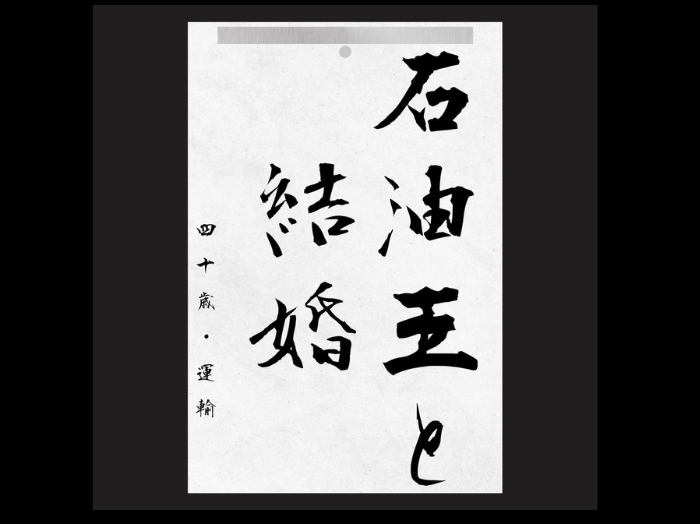 石油王と
結婚
四十歳・運輸